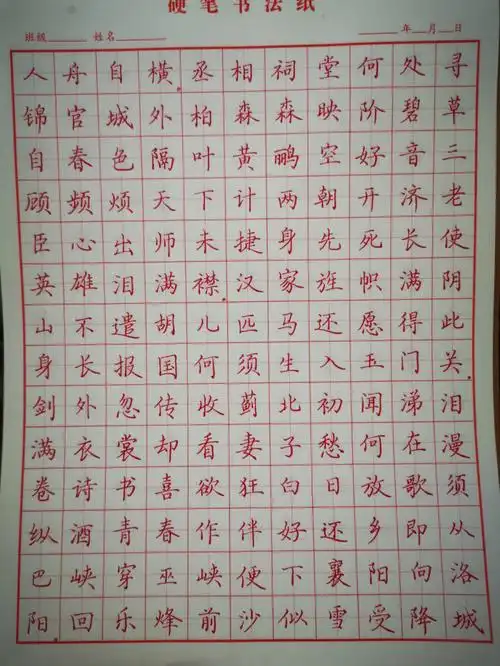 硬笔书法纸
班级 姓名 年 月 日
人舟自横.丞相祠堂何处寻
锦官城外柏森森映阶碧草
自春色隔叶黄鹂空好音三
顾频烦天下计两朝开济老
臣心出师未捷身先死长使
英雄泪满襟.汉家旌帜满阴
山不遣胡儿匹马还愿得此
身长报国何须生入玉门关.
剑外忽传收蓟北初闻涕泪
满衣裳却看妻子愁何在漫
卷诗书喜欲狂白日放歌须
纵酒青春作伴好还乡即从
巴峡穿巫峡便下襄阳向洛
阳.回乐烽前沙似雪受降城